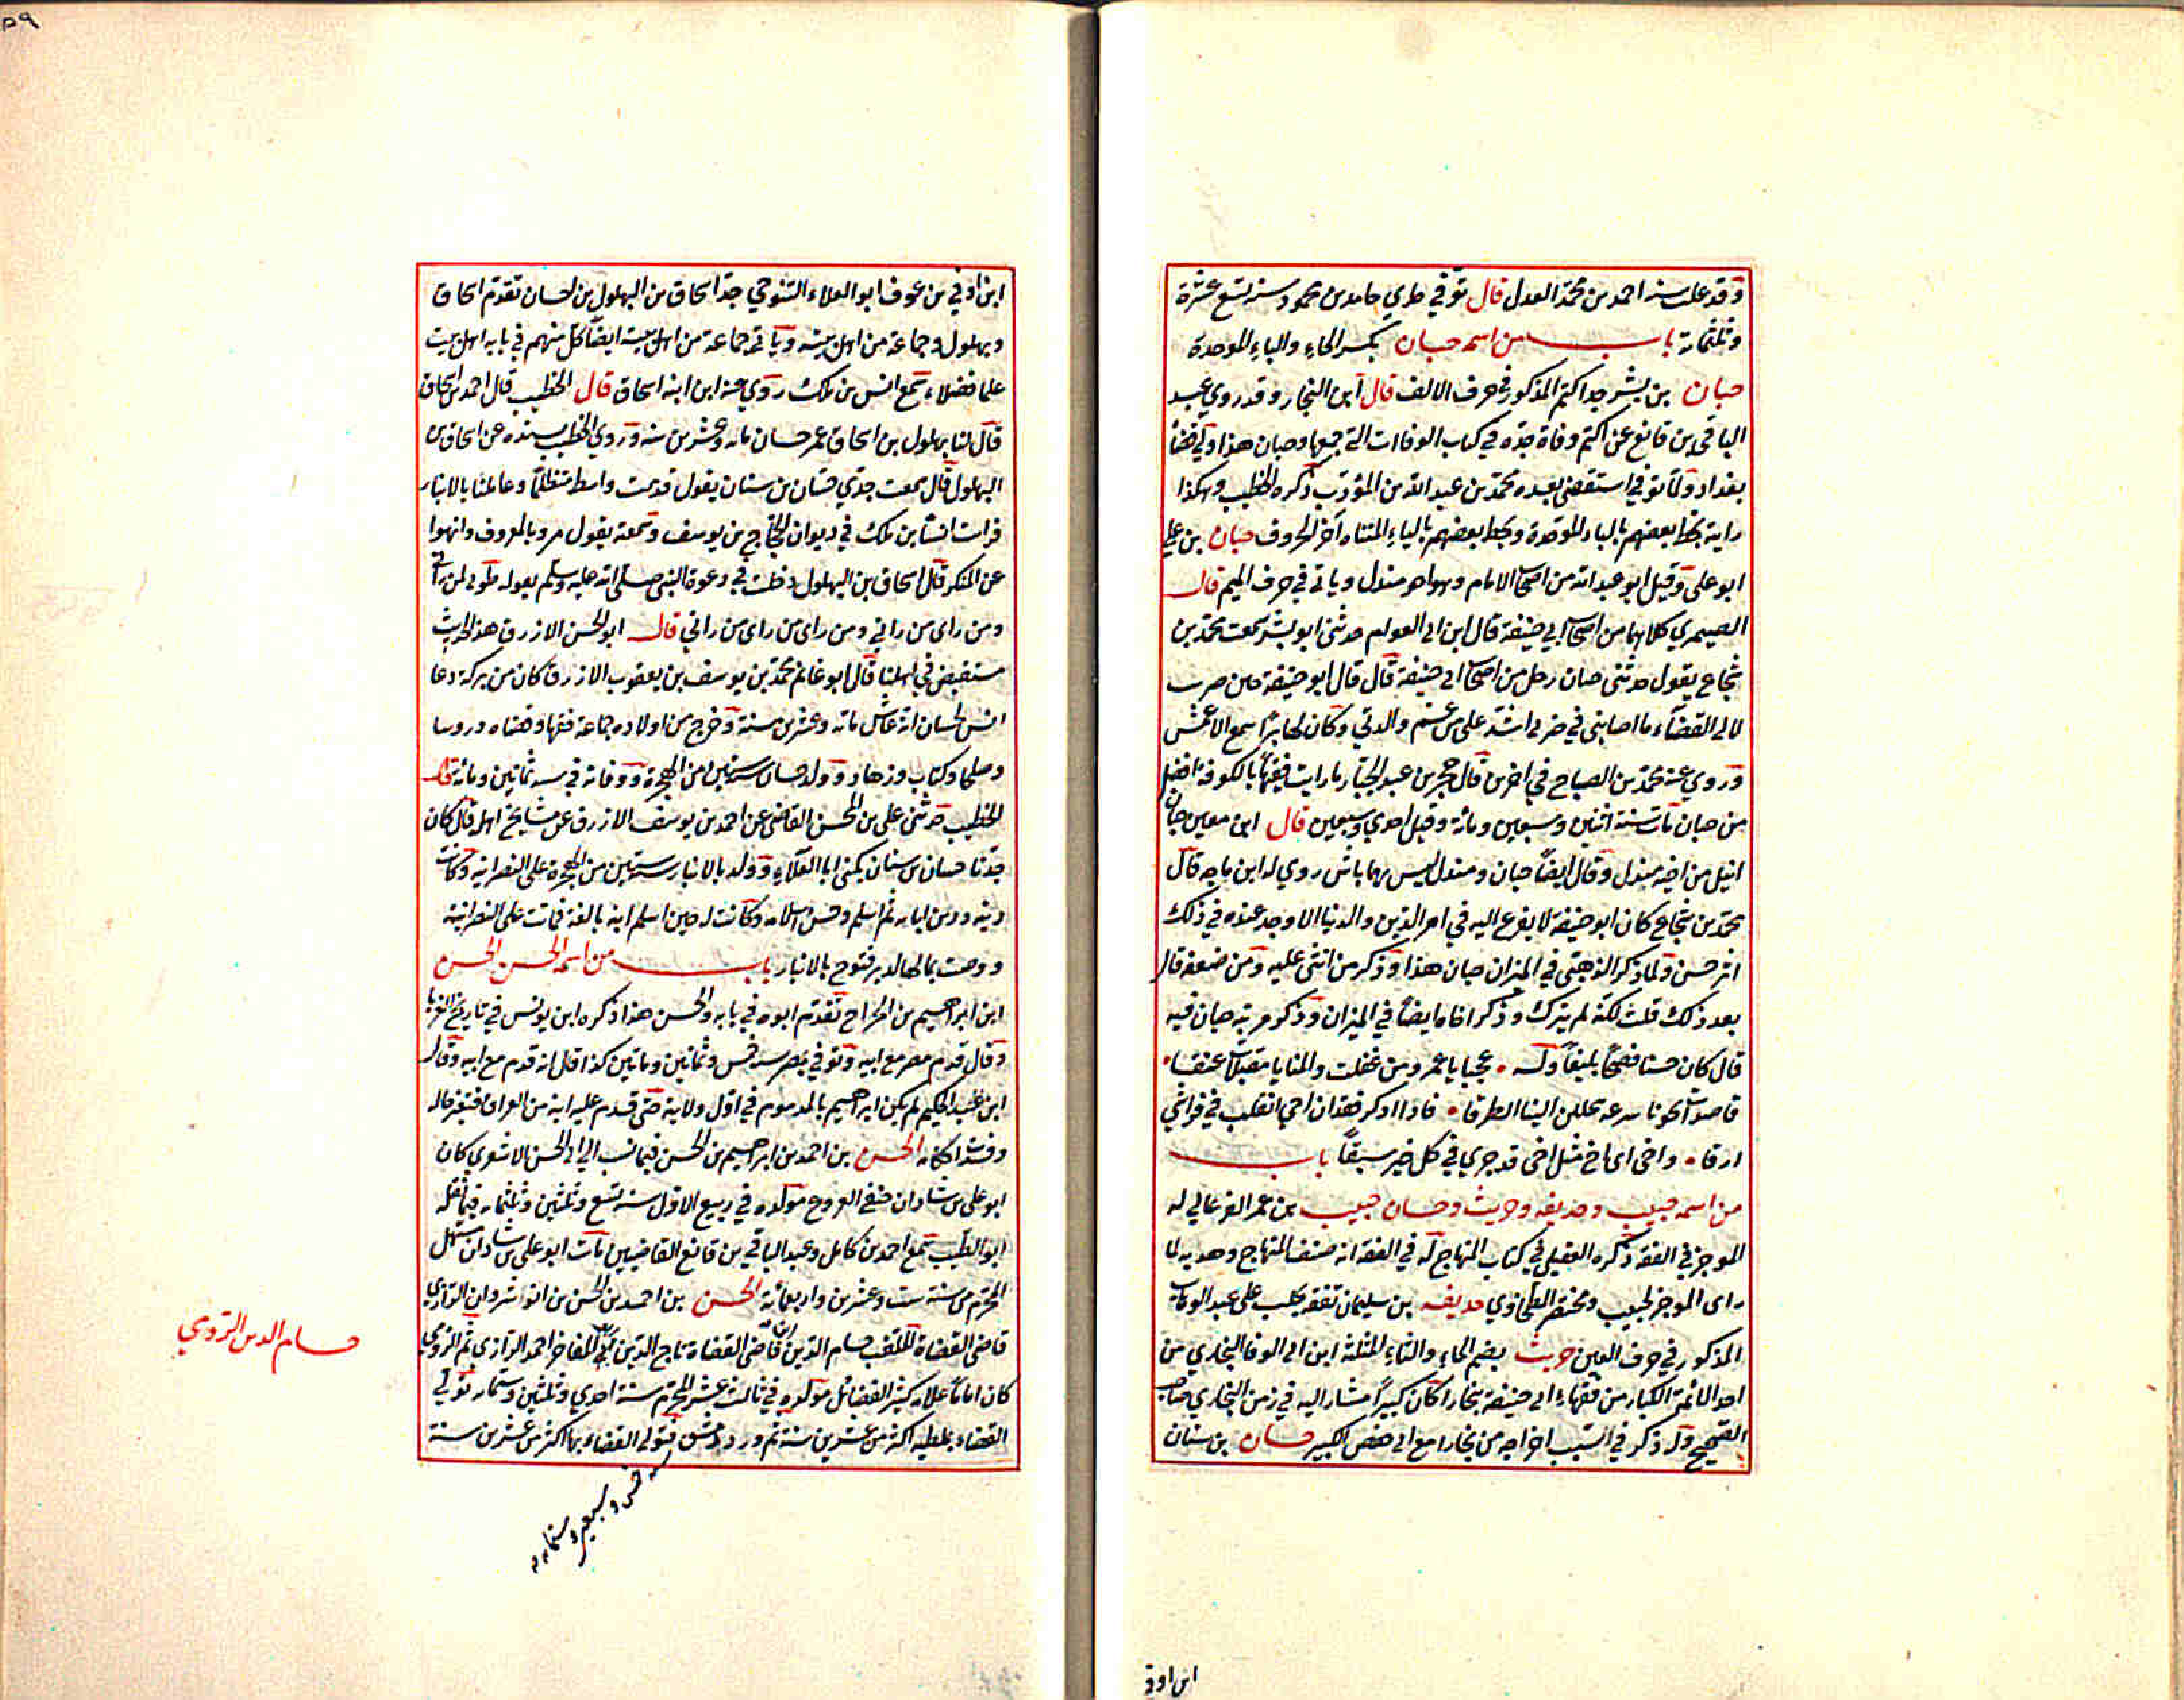 وقد علت سنه احمد بن محمد العدل قال توفي طري حامد بن محمود سنه تسع عشرة
وثلثمائة باب من اسمه حبان بكسر الحاء والباء الموحدة
حبان بن بشر جد اكثم المذكور في حرف الالف قال ابن النجار وقد روي عبد
الباقي بن قانع عن اكثم وفاة جده في كتاب الوفاات التي جمعها وحبان هذا ولي قضا
بغداد ولما توفي استقضي بعده محمد بن عبد الله بن المؤدب ذكره الخطيب وهكذا
رايته بخط بعضهم بالباء الموحدة وبخط بعضهم بالياء المثناه اخر الحروف حبان بن علي
ابو علي وقيل ابو عبد الله من اصحاب الامام وهو اخو مندل وياتي في حرف الميم قال
الصيمري كلاهما من اصحاب ابي حنيفة قال ابن ابي العوام حدثني ابو بشر سمعت محمد بن
شجاع يقول حدثني حبان رجل من اصحاب ابي حنيفة قال قال ابو حنيفة حين ضرب
لالي القضاء ما اصابني في ضربي اشد علي من غم والدتي وكان لها برا سمع الاعمش
وروي عنه محمد بن الصباح في اخرين قال حجر بن عبد الجبار ما رايت فقيها بالكوفة افضل
من حبان مات سنة اثنين وسبعين ومائة وقيل احدي وسبعين قال ابن معين حبان
انبل من اخيه مندل وقال ايضا حبان ومندل ليس بهما باس روي له ابن ماجه قال
محمد بن شجاع كان ابو حنيفة لا يفزع اليه في امر الدين والدنيا الا وجد عنده في ذلك
اثر حسن ولما ذكر الذهبي في الميزان حبان هذا وذكر من اثنى عليه ومن ضعفه قال
بعد ذلك قلت لكنه لم يترك وذكر اخاه ايضا في الميزان وذكر مرثية حبان فيه
قال كان حسنا فصيحا بليغا وله • عجبا يا عمرو من غفلت والمنايا مقبلات عنقا •
قاصدات نحونا مسرعة تخللن الينا الطرقا • فاذا اذكر فقدان اخي انقلب في فراشي
ارقا • واخي اي اخ مثل اخي قد جري في كل خير سبقا باب
من اسمه حبيب وحذيفه وحريث وحسان حبيب بن عمر الفرغاني له
الموجز في الفقه ذكره العقيلي في كتاب المنهاج له في الفقه انه صنف المنهاج وهديه لما
راى الموجز لحبيب ومختصر الطحاوي حذيفه بن سليمان تفقه بحلب على عبد الوهاب
المذكور في حرف العين حريث بضم الحاء والثاء المثلثة ابن ابي الوفا البخاري من
احد الائمة الكبار من فقهاء ابي حنيفة ببخارا كان كبيرا مشار اليه في زمن البخاري صاحب
الصحيح وله ذكر في السبب اخراجه من بخارا مع ابي حفص الكبير حسان بن سنان
ابن اوفي
٥٩
ابن اوفي بن عوف ابو العلاء التنوخي جد اسحاق بن البهلول بن حسان تقدم اسحاق
وبهلول وجماعة من اهل بيته وياتي جماعة من اهل بيته ايضا كل منهم في بابه اهل بيت
علما فضلاء سمع انس بن مالك روي عنه ابن ابنه اسحاق قال الخطيب قال احمد بن اسحاق
قال لنا بهلول بن اسحاق عمر حسان مائه وعشرين سنه وروي الخطيب بسنده عن اسحاق بن
البهلول قال سمعت جدي حسان بن سنان يقول قدمت واسط متظلما وعاملنا بالانبار
فرايت انسا بن مالك في ديوان الحجاج بن يوسف وسمعته يقول مروا بالمعروف وانهوا
عن المنكر قال اسحاق بن البهلول دخلت في دعوة النبي صلى الله عليه وسلم بقوله طوبى لمن راني
ومن راى من راني ومن راى من راى من راني قال ابو الحسن الازرق هذا الحديث
مستفيض في اهلنا قال ابو غانم محمد بن يوسف بن يعقوب الازرق كان من بركة دعا
انس لحسان انه عاش مائه وعشرين سنة وخرج من اولاده جماعة فقهاء وقضاه ورووسا
وصلحا وكتاب وزهاد وولد حسان سنة ستين من الهجرة ووفاته في سنه ثمانين ومائة قال
الخطيب حدثني علي بن المحسن القاضي عن احمد بن يوسف الازرق عن مشايخ اهله قال كان
جدنا حسان بن سنان يكنى ابا العلاء وولد بالانبار سنة ستين من الهجرة على النصرانيه وكانت
دينه ودين ابايه ثم اسلم وحسن اسلامه وكانت له حين اسلم ابنه بالغة فماتت على النصرانية
ووصت بمالها لدير فتوح بالانبار باب من اسمه الحسن الحسن
ابن ابراهيم بن الجراح تقدم ابوه في بابه والحسن هذا ذكره ابن يونس في تاريخ الغربا
وقال قدم مصر مع ابيه وتوفي بمصر سنه خمس وثمانين ومائتين كذا قال انه قدم مع ابيه وقال
ابن عبد الحكيم لم يكن ابراهيم بالمذموم في اول ولاية حتى قدم عليه ابنه من العراق فتغير حاله
وفسدت احكامه الحسن بن احمد بن ابراهيم بن الحسن فيما نسب الي ابي الحسن الاشعري كان
ابو علي بن شاذان حنفي الفروع مولده في ربيع الاول سنه تسع وثلثين وثلثمائه فيما نقله
ابو الطيب سمع احمد بن كامل وعبد الباقي بن قانع القاضيين مات ابو علي بن شاذان مستهل
المحرم من سنة ست وعشرين واربعمائة الحسن بن احمد بن الحسن بن انوشروان الرازي
قاضي القضاة الملقب حسام الدين ابن قاضي القضاة تاج الدين ابي المفاخر احمد الرازي ثم الرومي
كان اماما علامه كثير الفضائل مولده في ثالث عشر المحرم سنة احدي وثلثين وستمائه تولي
القضاء بملطيه اكثر من عشرين سنة ثم ورد دمشق فتولي القضاء بها اكثر من عشرين سنة
سنه خمس وسبعين وستمائه
حسام الدين الرومي